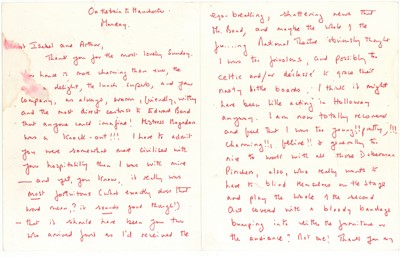 On the train to Manchester.
Monday.
Isabel and Arthur,
Thank you for the most lovely Sunday.
house is more charming than ever, the
a delight, the lunch superb, and your
company, as always, warm, friendly, witty
and the most direct contrast to Edward Bond
that anyone could imagine! Mistress Magdan
was a knock-out!!! I have to admit
you were somewhat more civilised with
your hospitality than I was with mine
— and yet, you know, it really was
most fortuitous (what exactly does that
word mean,? it sounds good though!)
— that it should have been you two
who arrived just as I'd received the
ego-breaking, shattering news that
the Bond, and maybe the whole of the
fu....ng National Theatre obviously thought
I was too frivolous, and possibly too
celtic and/or déclassé to grace their
nasty little boards. I think it might
have been like acting in Holloway
anyway. I am now totally recovered
and feel that I was too young!! pretty!!!
charming!!, feline!! & generally too
nice to work with all those Doberman
Pinchers, also, who really wants to
have to blind themselves on the stage
and play the whole of the second
Act covered with a bloody bandage
bumping into either the furniture or
the audience? Not me! Thank you my